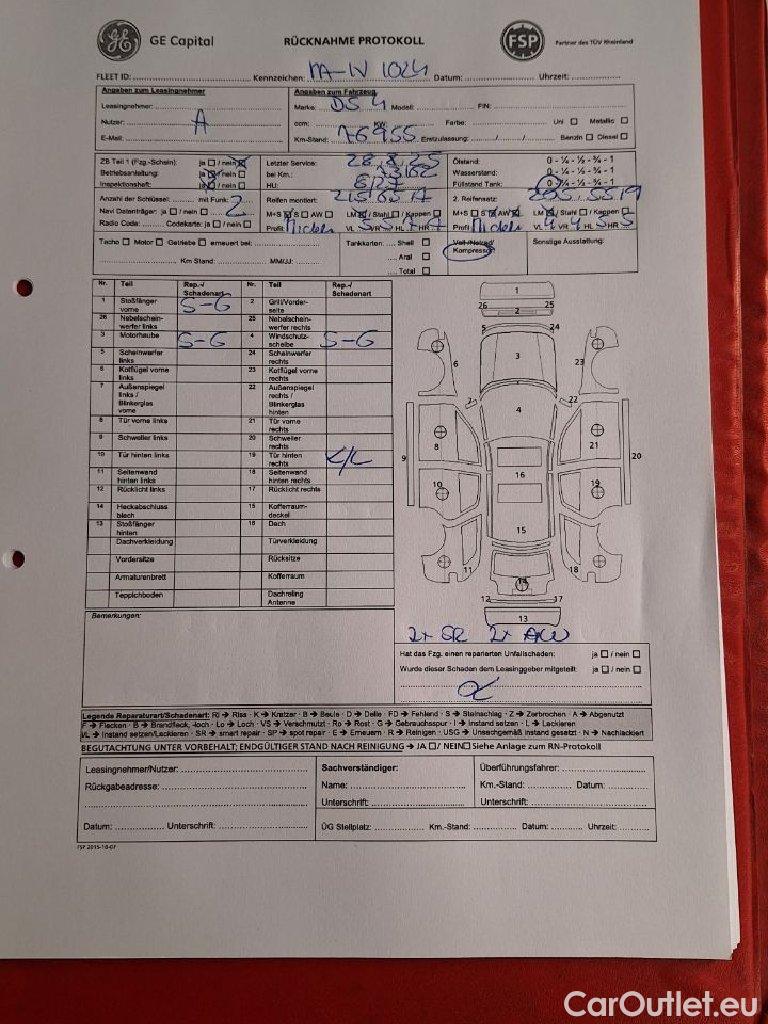 GE Capital RÜCKNAHME PROTOKOLL FSP Partner des TÜV Rheinland
FLEET ID: Kennzeichen: Datum: Uhrzeit:
Angaben zum Leasingnehmer
Angaben zum Fahrzeug
Leasingnehmer: Marke: DS 4 Modell: FIN:
Nutzer: A ccm: KW: Farbe: Uni Metallic
E-Mail: Km-Stand: 76955 Erstzulassung: / / Benzin Diesel
ZB Teil 1 (Fzg.-Schein): ja / nein Letzter Service: 28.8.25 Ölstand: 0 - ¼ - ½ - ¾ - 1
Betriebsanleitung: ja / nein bei Km: Wasserstand: 0 - ¼ - ½ - ¾ - 1
Inspektionsheft: ja / nein HU: 6/27 Füllstand Tank: 0 - ¼ - ½ - ¾ - 1
Anzahl der Schlüssel: mit Funk: 2 Reifen montiert: 2. Reifensatz: 205.5519
Navi Datenträger: ja / nein M+S S AW LM / Stahl / Kappen M+S S AW LM / Stahl / Kappen
Radio Code: Codekarte: ja / nein Profil: VL 5 VR 5 HL 7 HR 7 Profil VL 4 VR 4 HL 5 HR 5
Tacho Motor Getriebe erneuert bei: Tankkarten: Shell
Km Stand: MM/JJ: Aral
Total
Kompressor
Sonstige Ausstattung:
Nr. Teil Rep.-/ Schadenart Nr. Teil Rep.-/ Schadenart
1 Stoßfänger vorne S-G 2 Grill/Vorderseite
26 Nebelscheinwerfer links 25 Nebelscheinwerfer rechts
3 Motorhaube S-G 4 Windschutzscheibe S-G
5 Scheinwerfer links 24 Scheinwerfer rechts
6 Kotflügel vorne links 23 Kotflügel vorne rechts
7 Außenspiegel links / Blinkerglas vorne 22 Außenspiegel rechts / Blinkerglas hinten
8 Tür vorne links 21 Tür vorne rechts
9 Schweller links 20 Schweller rechts
10 Tür hinten links 19 Tür hinten rechts
11 Seitenwand hinten links 18 Seitenwand hinten rechts
12 Rücklicht links 17 Rücklicht rechts
14 Heckabschlussblech 15 Kofferraumdeckel
13 Stoßfänger hinten 16 Dach
Dachverkleidung Türverkleidung
Vordersitze Rücksitze
Armaturenbrett Kofferraum
Teppichboden Dachreling Antenne
1
26 25
2
5 24
6 3 23
7 22
4
8 21
9 20
16
10 19
15
11 18
14
12 17
13
Bemerkungen:
Hat das Fzg. einen reparierten Unfallschaden: ja / nein
Wurde dieser Schaden dem Leasinggeber mitgeteilt: ja / nein
Legende Reparaturart/Schadenart: RI → Riss - K → Kratzer - B → Beule - D → Delle - FD → Fehlend - S → Steinschlag - Z → Zerbrochen - A → Abgenutzt
F → Flecken - B → Brandfleck, -loch - Lo → Loch - VS → Verschmutzt - Ro → Rost - G → Gebrauchsspur - I → Instand setzen - L → Lackieren
I/L → Instand setzen/Lackieren - SR → smart repair - SP → spot repair - E → Erneuern - R → Reinigen - USG → Unsachgemäß instand gesetzt - N → Nachlackiert
BEGUTACHTUNG UNTER VORBEHALT; ENDGÜLTIGER STAND NACH REINIGUNG → JA / NEIN Siehe Anlage zum RN-Protokoll
Leasingnehmer/Nutzer: Sachverständiger: Überführungsfahrer:
Rückgabeadresse: Name: Km.-Stand: Datum:
Unterschrift: Unterschrift:
Datum: Unterschrift: ÜG Stellplatz: Km.-Stand: Datum: Uhrzeit:
CarOutlet.eu